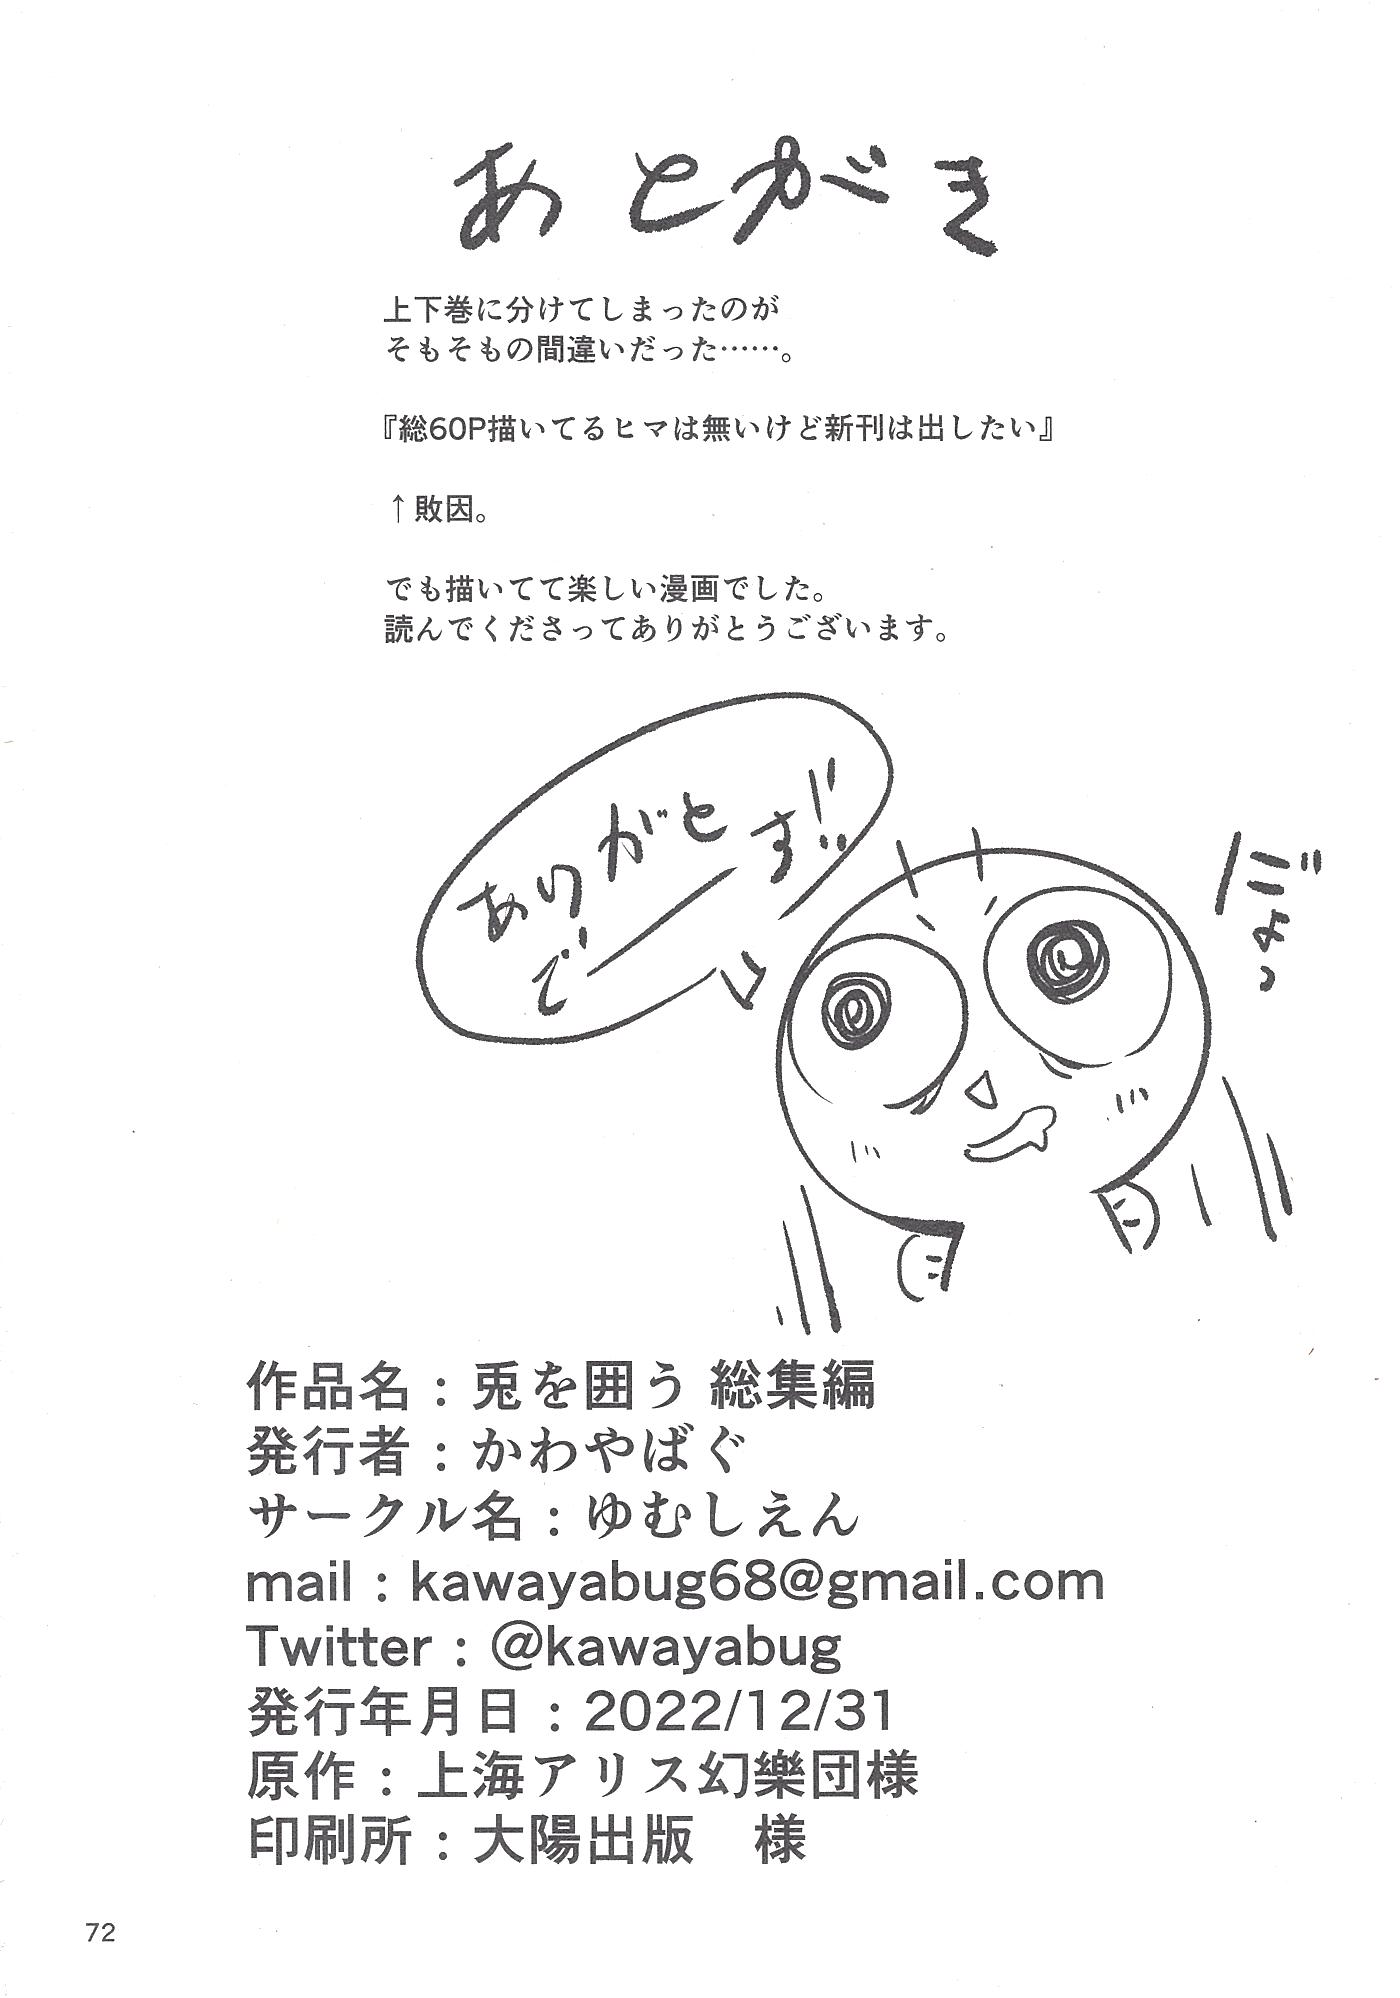 あとがき
上下巻に分けてしまったのが
そもそもの間違いだった……。
『総60P描いてるヒマは無いけど新刊は出したい』
↑敗因。
でも描いてて楽しい漫画でした。
読んでくださってありがとうございます。
ありがと
でーす!!
作品名：兎を囲う 総集編
発行者：かわやばぐ
サークル名：ゆむしえん
mail：kawayabug68@gmail.com
Twitter：@kawayabug
発行年月日：2022/12/31
原作：上海アリス幻樂団様
印刷所：大陽出版　様
72